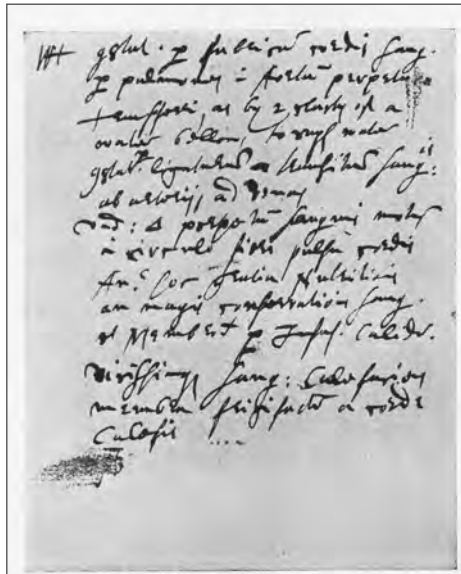 WH constat · p fabricam cordis sang.
p pulmones in Aortam perpetuo
transferri, as by 2 clacks of a
water bellows, to rays water
constat p ligaturam transitum sang:
ab arterijs ad venas
und: Δ perpetuum sanguinis motum
in circulo fieri pulsu cordis
An? hoc gratia Nutritionis
an magis conservationis sang.
et Membror p Infus. calidam.
vicissimq sang: Calefaciens
membra frigifactum a corde
Calefit ....